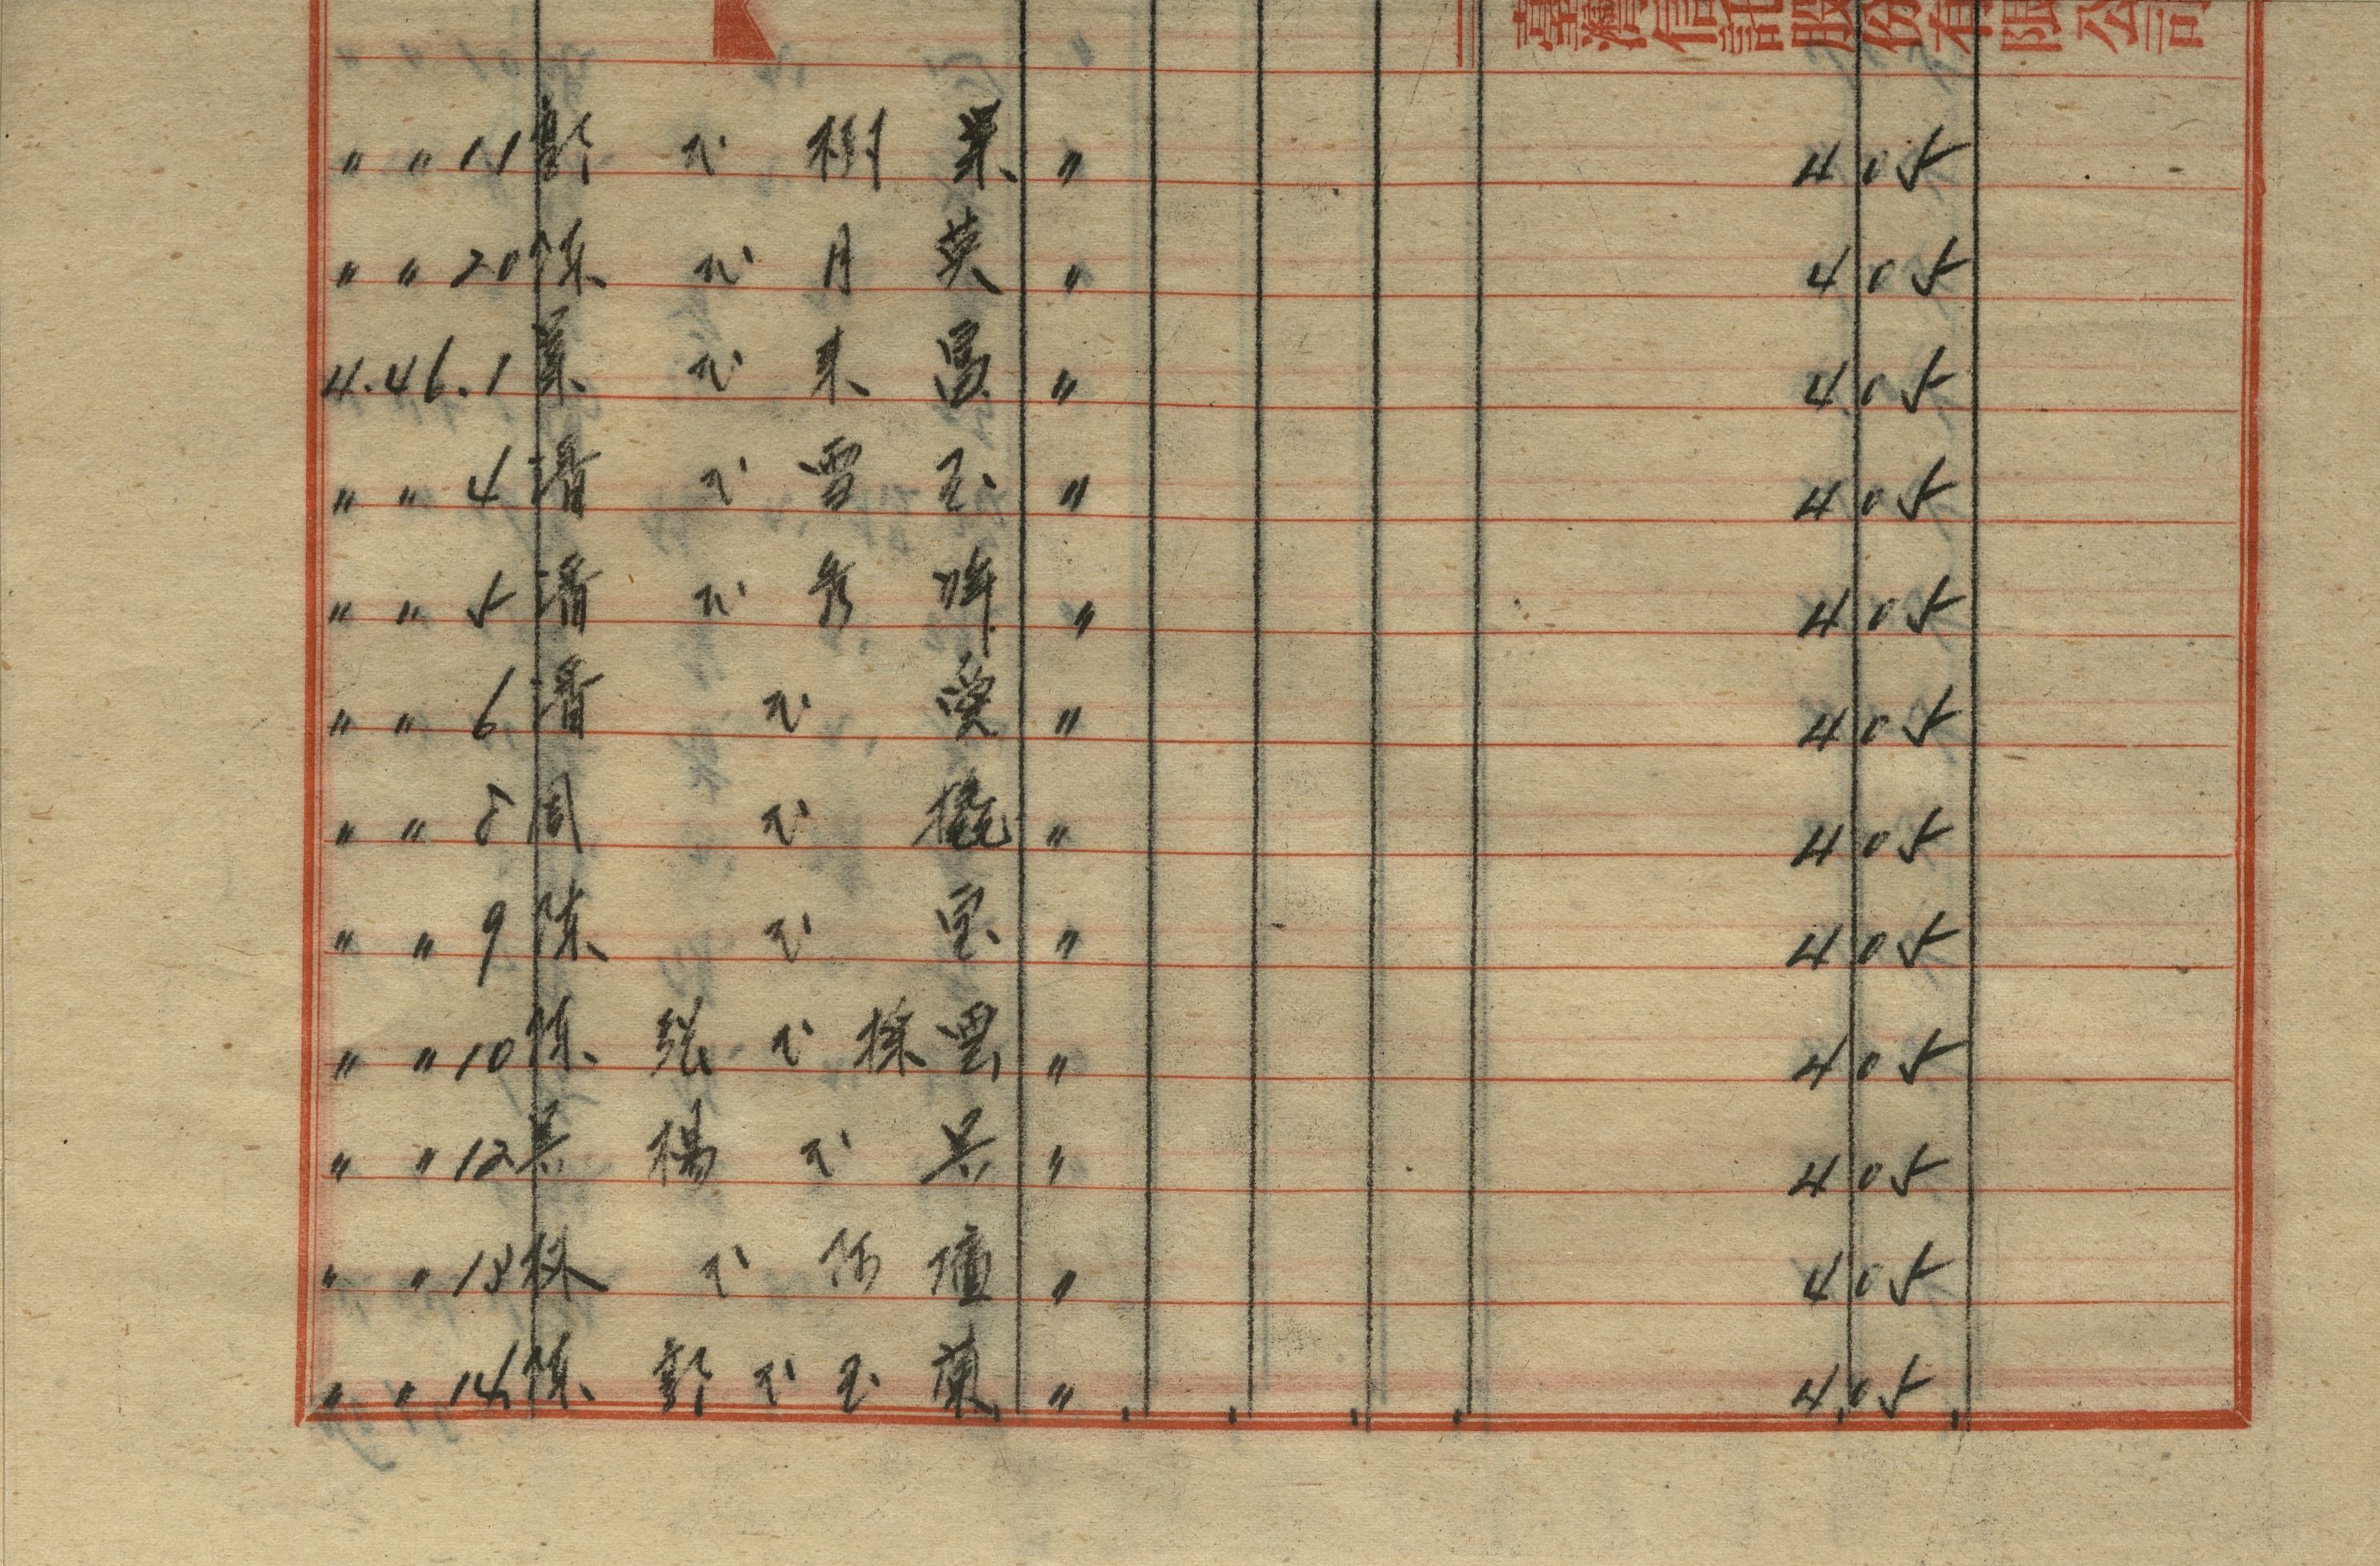 臺灣信託股份有限公司
〃 〃 11 郭氏樹菓 〃 405
〃 〃 20 陳氏月英 〃 405
4.46.1 葉氏來冨 〃 405
〃 〃 4 潘氏雪玉 〃 405
〃 〃 5 潘氏秀 〃 405
〃 〃 6 潘氏愛 〃 405
〃 〃 8 周氏 〃 405
〃 〃 9 陳氏宝 〃 405
〃 〃 10 陳張氏採雲 〃 405
〃 〃 12 吳楊氏 〃 405
〃 〃 13 林氏阿 〃 405
〃 〃 14 陳郭氏玉蘭 〃 405